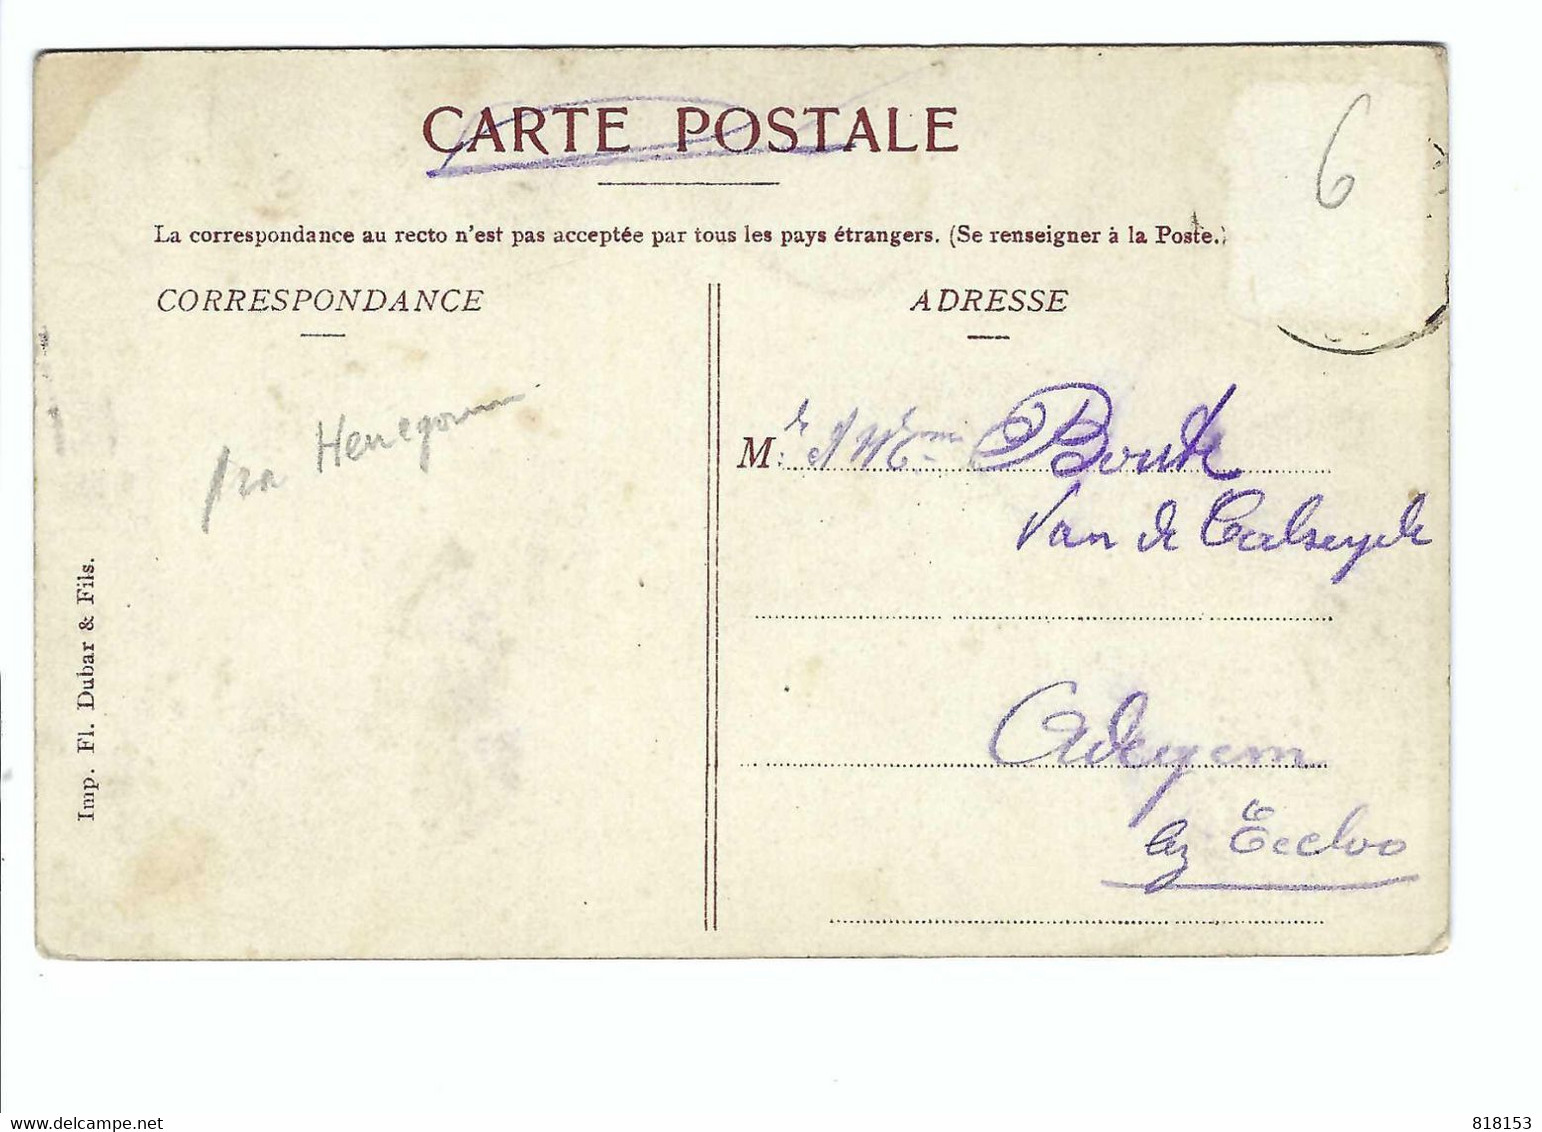 CARTE POSTALE
6
La correspondance au recto n'est pas acceptée par tous les pays étrangers. (Se renseigner à la Poste.)
CORRESPONDANCE
ADRESSE
M
Van de
Adegem
Eecloo
Imp. Fl. Dubar & Fils.
www.delcampe.net
delcampe.net
818153